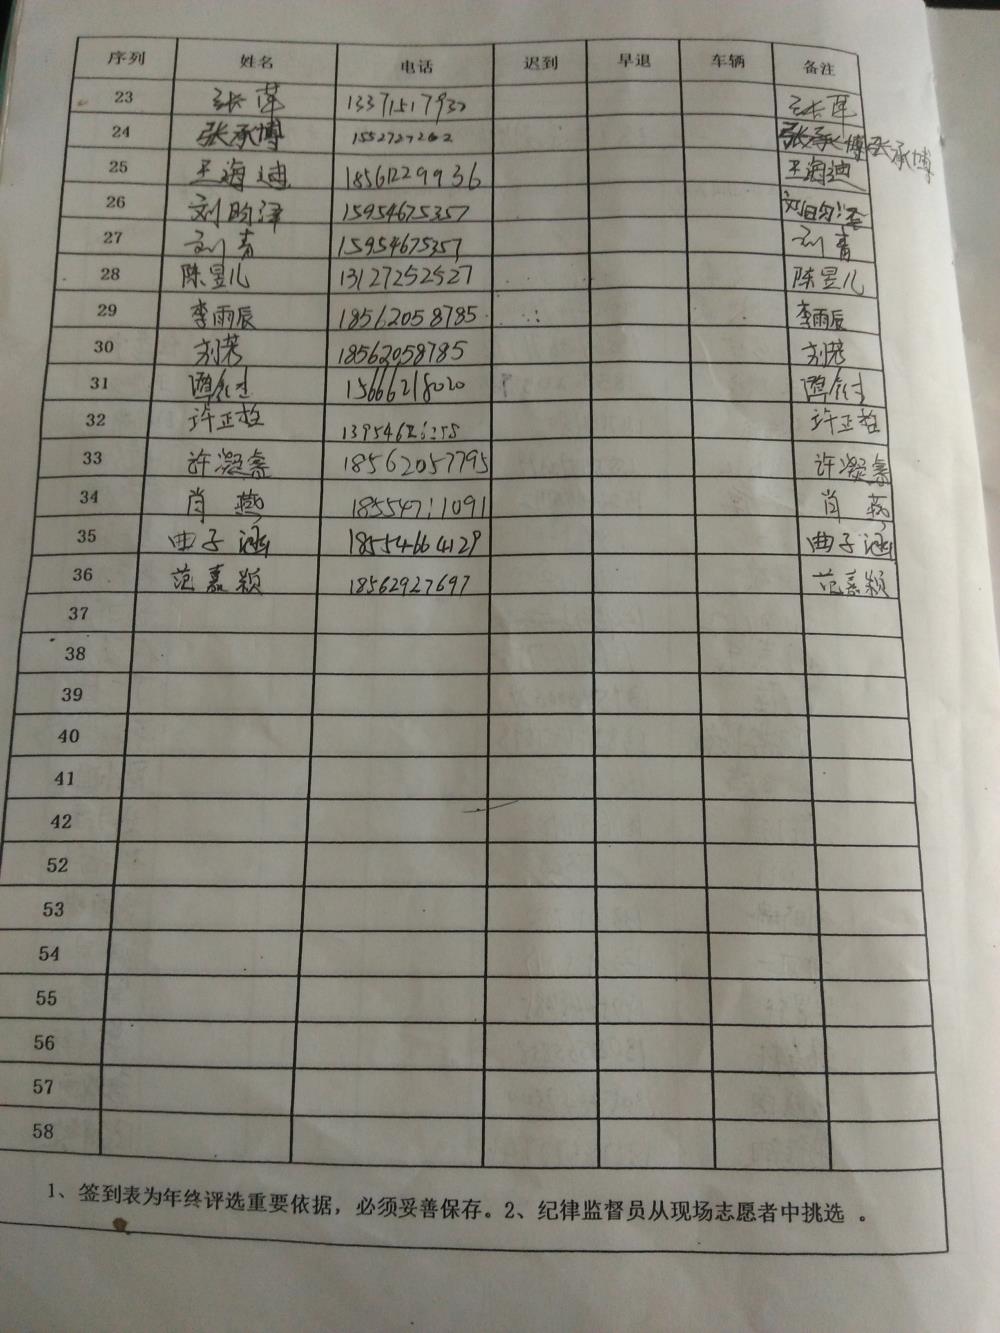 序列 姓名 电话 迟到 早退 车辆 备注
23 张莲 13371517932 张莲
24 张承博 1552727262 张承博 张承博
25 王海迪 18561229936 王海迪
26 刘昀泽 15954675357 刘昀泽
27 刘青 15954675357 刘青
28 陈昱儿 13127252527 陈昱儿
29 李雨辰 18562058785 李雨辰
30 刘芳 18562058785 刘芳
31 15666218020
32 许正
33 许凝鑫 18562057795 许凝鑫
34 肖燕 肖燕
35 曲子涵 18554664129 曲子涵
36 范嘉颖 18562927697 范嘉颖
37
38
39
40
41
42
52
53
54
55
56
57
58
1、签到表为年终评选重要依据，必须妥善保存。2、纪律监督员从现场志愿者中挑选 。